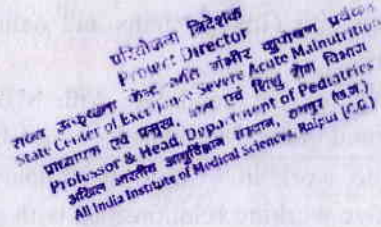 परियोजना निदेशक
Project Director
राज्य उत्कृष्टता केन्द्र अति गंभीर कुपोषण प्रबंधन
State Center of Excellence Severe Acute Malnutrition
प्राध्यापक एवं प्रमुख, बाल एवं शिशु रोग विभाग
Professor & Head, Department of Pediatrics
अखिल भारतीय आयुर्विज्ञान संस्थान, रायपुर (छ.ग.)
All India Institute of Medical Sciences, Raipur (C.G.)